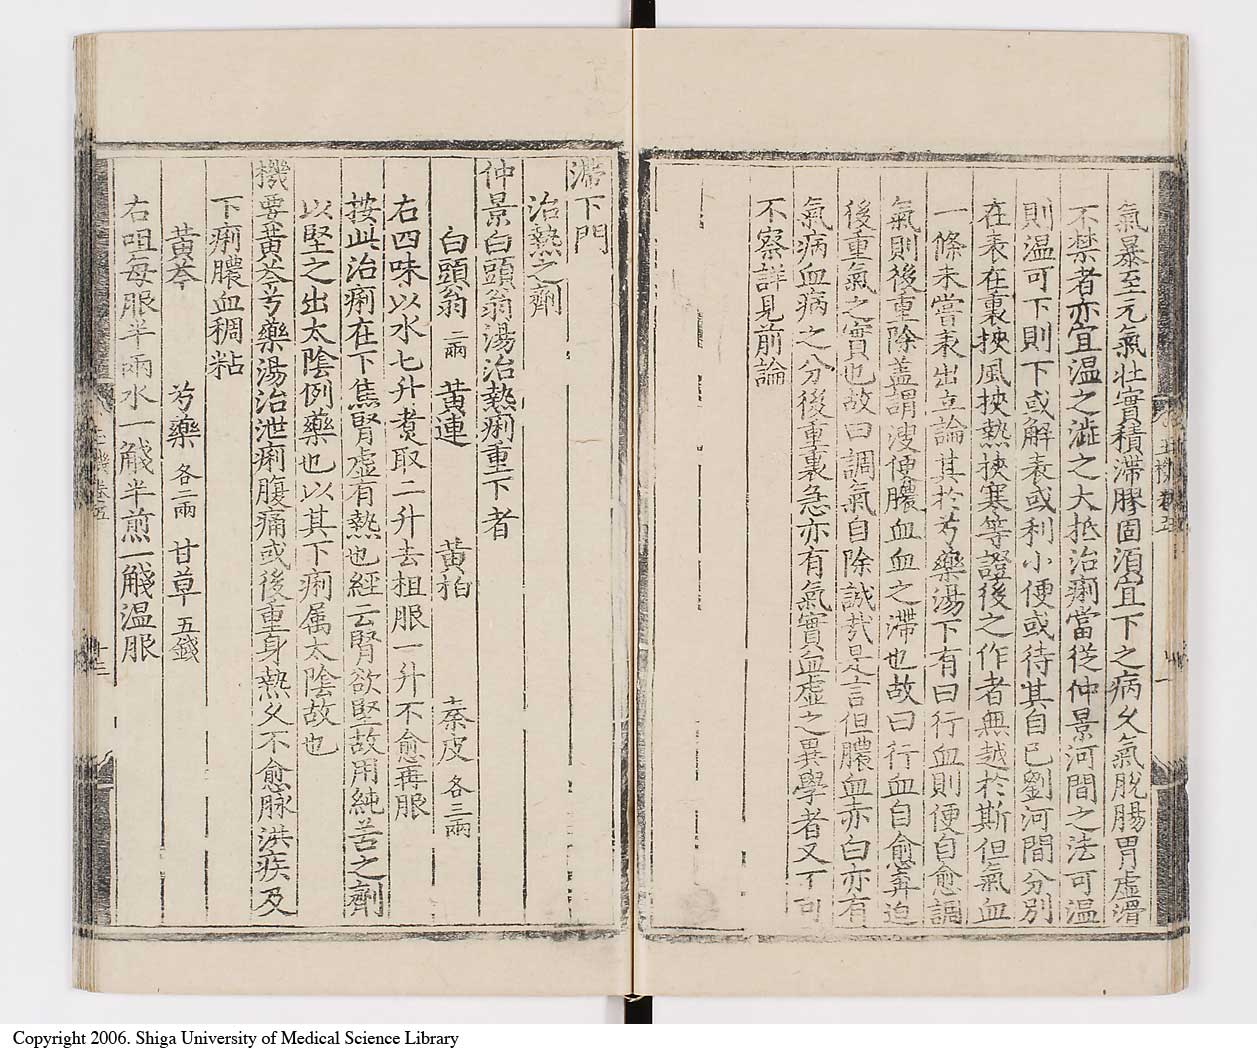 氣暴至元氣壯實積滯膠固須宜下之病久氣脫腸胃虛滑
不禁者亦宜溫之澁之大抵治痢當從仲景河間之法可溫
則溫可下則下或解表或利小便或待其自已劉河間分別
在表在裏挾風挾熱挾寒等證後之作者無越於斯但氣血
一條未嘗表出立論其於芍藥湯下有曰行血則便自愈調
氣則後重除蓋謂溲便膿血血之滯也故曰行血自愈奔迫
後重氣之實也故曰調氣自除誠哉是言但膿血赤白亦有
氣病血病之分後重裏急亦有氣實血虛之異學者又不可
不察詳見前論
滯下門
治熱之劑
仲景白頭翁湯治熱痢重下者
白頭翁 二兩 黃連 黃柏 秦皮 各三兩
右四味以水七升煑取二升去柤服一升不愈再服
按此治痢在下焦腎虛有熱也經云腎欲堅故用純苦之劑
以堅之出太陰例藥也以其下痢属太陰故也
機要黃芩芍藥湯治泄痢腹痛或後重身熱久不愈脉洪疾及
下痢膿血稠粘
黃芩 芍藥 各二兩 甘草 五錢
右咀每服半兩水一艬半煎一艬溫服
十二
Copyright 2006. Shiga University of Medical Science Library